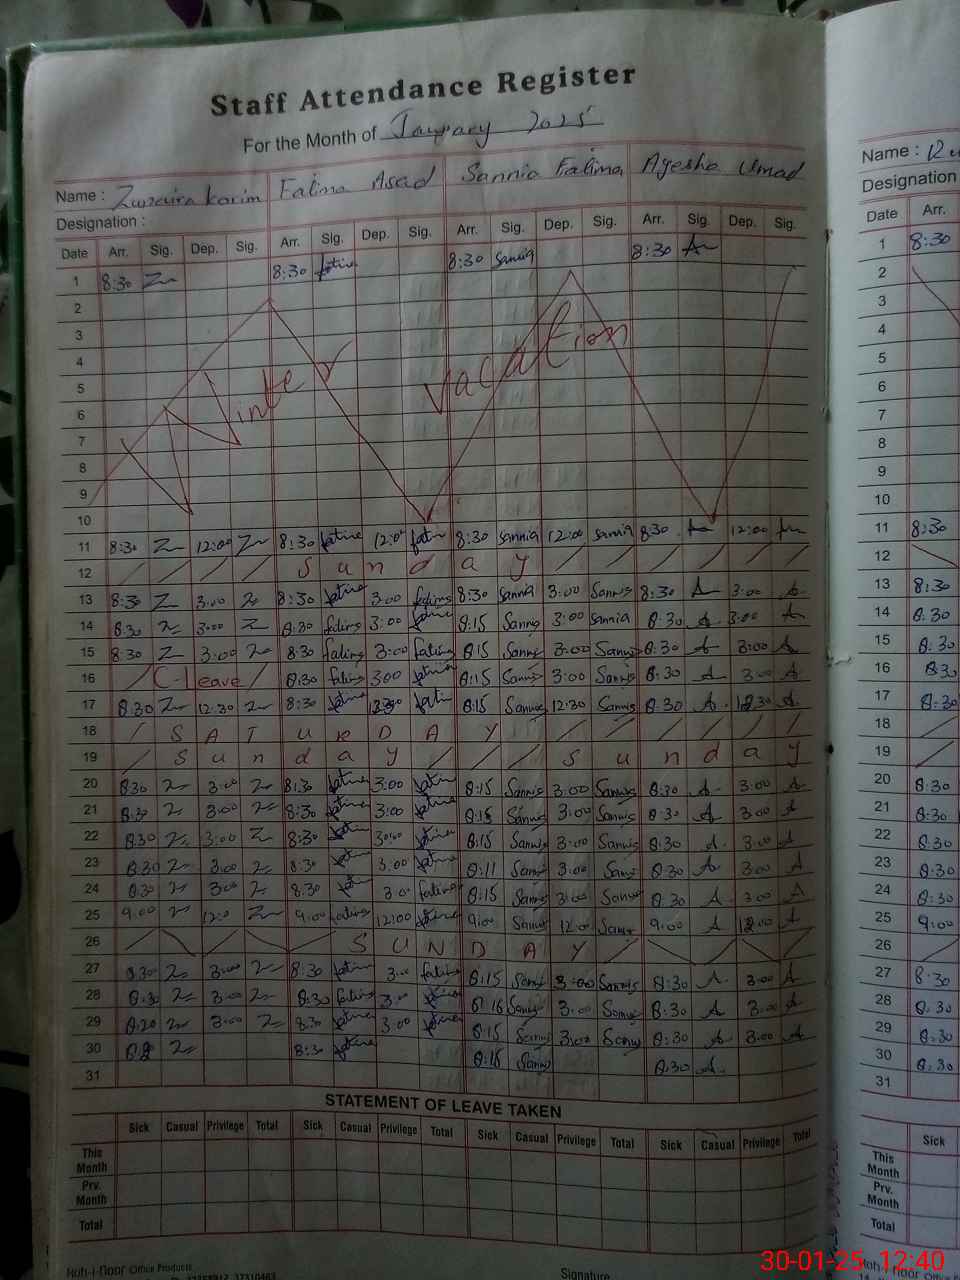 Staff Attendance Register
For the Month of January 2025
Name : Zunaira Karim Fatima Asad Sannia Fatima Ayesha Umad
Designation :
Date Arr. Sig. Dep. Sig. Arr. Sig. Dep. Sig. Arr. Sig. Dep. Sig. Arr. Sig. Dep. Sig.
1 8:30 8:30 fatima 8:30 Sannia 8:30 A
2
3
4
5
6
7
8
9
10
Winter vacation
11 8:30 Z 12:00 Z 8:30 fatima 12:00 fatima 8:30 Sannia 12:00 Sannia 8:30 12:00
12 Sunday
13 8:30 Z 3:00 Z 8:30 fatima 3:00 fatima 8:30 Sannia 3:00 Sannia 8:30 A 3:00 A
14 8:30 Z 3:00 Z 8:30 fatima 3:00 fatima 8:15 Sannia 3:00 Sannia 8:30 A 3:00 A
15 8:30 Z 3:00 Z 8:30 fatima 3:00 fatima 8:15 Sannia 3:00 Sannia 8:30 A 3:00 A
16 C-Leave 8:30 fatima 3:00 fatima 8:15 Sannia 3:00 Sannia 8:30 A 3:00 A
17 8:30 Z 12:30 Z 8:30 fatima fatima 8:15 Sannia 12:30 Sannia 8:30 A 12:30 A
18 SATURDAY
19 Sunday Sunday
20 8:30 Z 3:00 Z 8:30 fatima 3:00 fatima 8:15 Sannia 3:00 Sannia 8:30 A 3:00 A
21 8:30 Z 3:00 Z 8:30 fatima 3:00 fatima 8:15 Sannia 3:00 Sannia 8:30 A 3:00 A
22 8:30 Z 3:00 Z 8:30 fatima 3:00 fatima 8:15 Sannia 3:00 Sannia 8:30 A 3:00 A
23 8:30 Z 3:00 Z 8:30 fatima 3:00 fatima 8:11 Sannia 3:00 Sannia 8:30 A 3:00 A
24 8:30 Z 3:00 Z 8:30 fatima 3:0 fatima 8:15 Sannia 3:00 Sannia 8:30 A 3:00 A
25 9:00 Z 12:0 Z 9:00 fatima 12:00 fatima 9:00 Sannia 12:00 Sannia 9:00 A 12:00 A
26 SUNDAY
27 8:30 Z 3:00 Z 8:30 fatima 3:00 fatima 8:15 Sannia 3:00 Sannia 8:30 A 3:00 A
28 8:30 Z 3:00 Z 8:30 fatima 3:00 fatima 8:16 Sannia 3:00 Sannia 8:30 A 3:00 A
29 8:20 Z 3:00 Z 8:30 fatima 3:00 fatima 8:15 Sannia 3:00 Sannia 8:30 A 3:00 A
30 Z 8:30 fatima 8:15 Sannia 8:30 A
31
STATEMENT OF LEAVE TAKEN
Sick Casual Privilege Total Sick Casual Privilege Total Sick Casual Privilege Total Sick Casual Privilege Total
This Month
Prv. Month
Total
Koh-i-Noor Office Products
Signature
Name :
Designation
Date Arr.
1 8:30
2
3
4
5
6
7
8
9
10
11 8:30
12
13 8:30
14 8:30
15 8:30
16 8:30
17 8:30
18
19
20 8:30
21 8:30
22 8:30
23 8:30
24 8:30
25 9:00
26
27 8:30
28 8:30
29 8:30
30 8:30
31
Sick
This Month
Prv. Month
Total
Koh-i-Noor Of
30-01-25 12:40